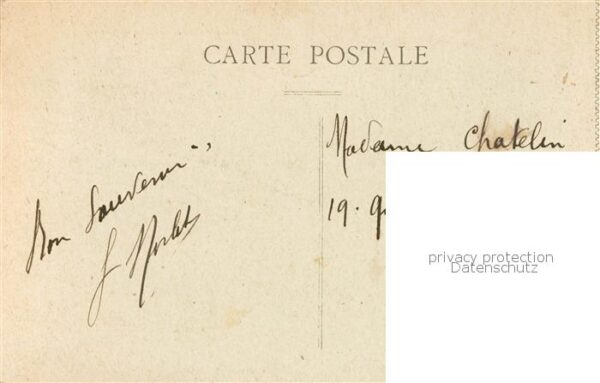 CARTE POSTALE
Bon Souvenir
Madame Chatelin
19.
privacy protection
Datenschutz